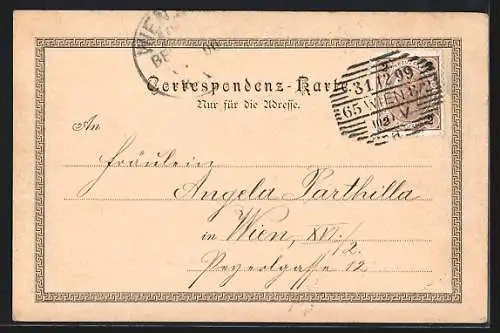 WIEN
31.12.99
65 WIEN 67
Correspondenz-Karte.
Nur für die Adresse.
An
Fräulein
Angela Parthilla
in Wien, XVI./2.
Peyerlgasse 12